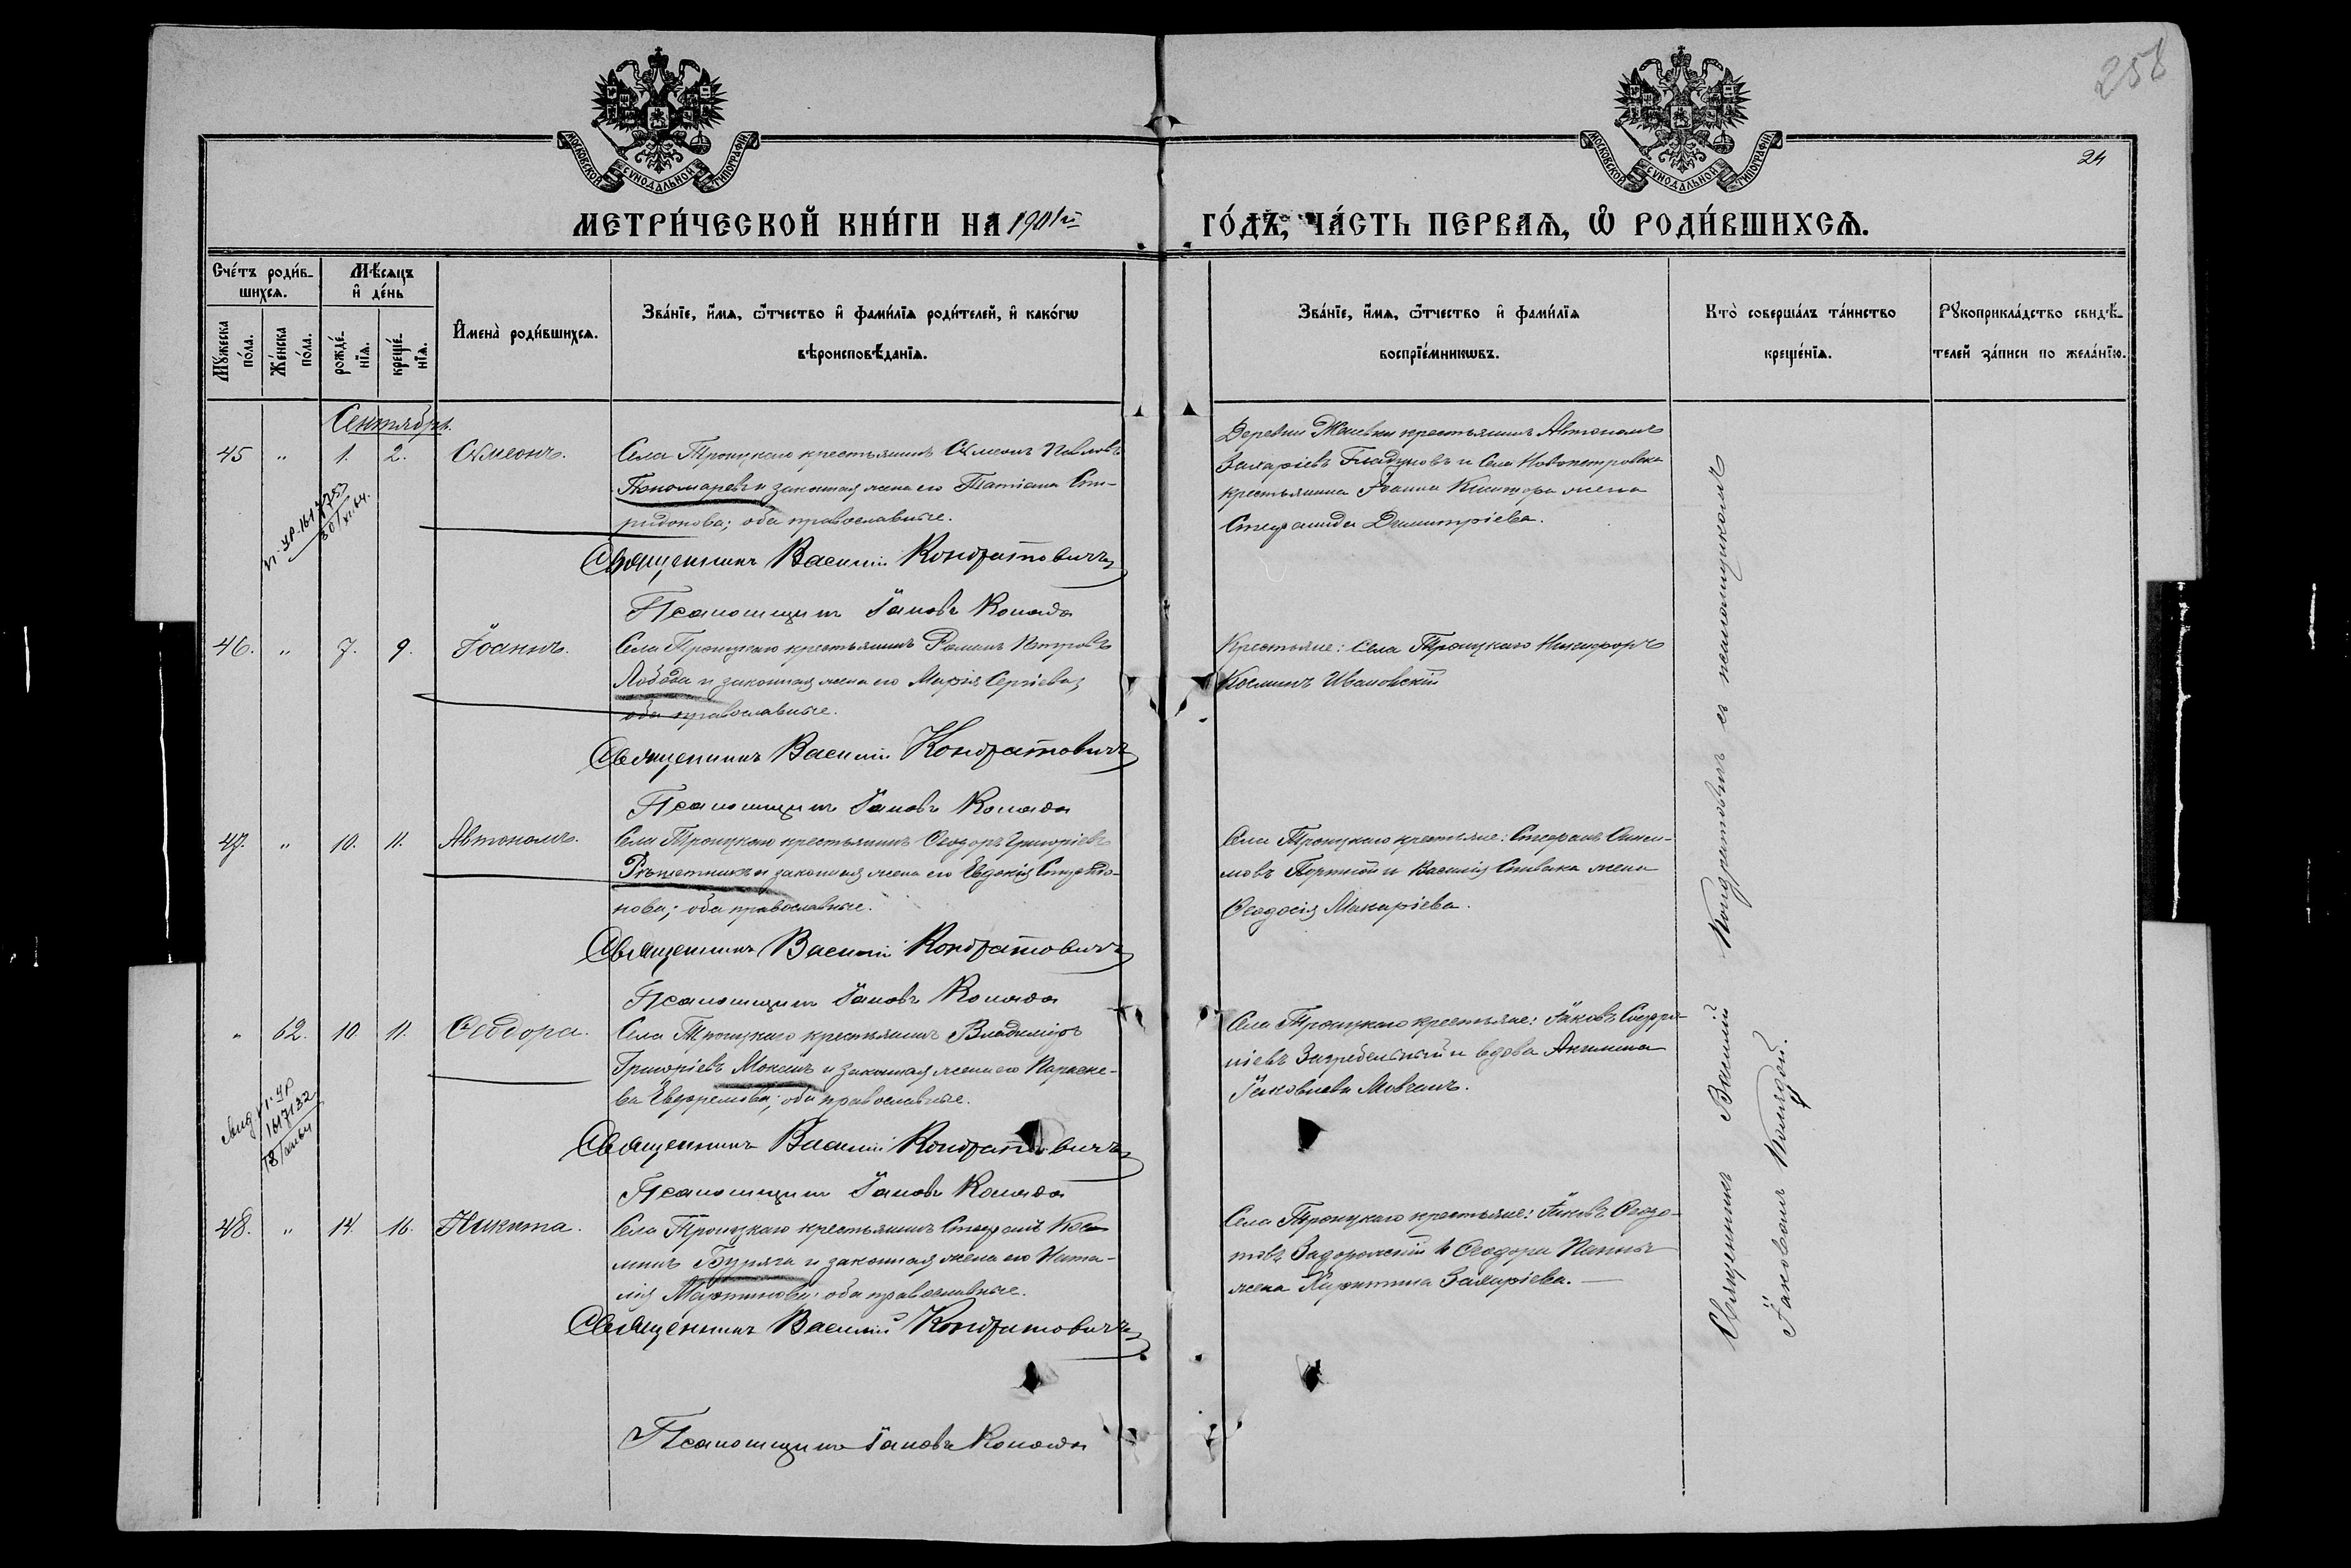 258
24
МОСКОВСКОЙ СУНОДАЛЬНОЙ ТИПОГРАФІИ
МОСКОВСКОЙ СУНОДАЛЬНОЙ ТИПОГРАФІИ
МЕТРИ́ЧЕСКОЙ КНИ́ГИ НА 1901й
ГО́ДЪ, ЧА́СТЬ ПЕРВАѦ, Ѡ҆ РОДИ́ВШИХСѦ.
Сче́тъ роди́в-
шихсѧ.
Мꙋжеска по́ла.
Же́нска по́ла.
Мѣсѧцъ
и҆ де́нь
рожде́-
нїѧ.
креще́-
нїѧ.
И҆мена̀ роди́вшихсѧ.
Зва́нїе, и҆́мѧ, ѻ҆́тчество и҆ фами́лїѧ роди́телей, и҆ како́гѡ
вѣроисповѣ́данїѧ.
Зва́нїе, и҆́мѧ, ѻ҆́тчество и҆ фами́лїѧ
воспрїе́мникѡвъ.
Кто̀ соверша́лъ та́инство
креще́нїѧ.
Рꙋкоприкла́дство свидѣ́-
телей за́писи по жела́нїю.
Сентябрь.
45 " 1. 2. Сѵмеонъ.
Села Троицкаго крестьянинъ Сѵмеонъ Павловъ
Пономаревъ и законная жена его Татіана Спи-
ридонова; оба православные.
Священникъ Василій Кондратовичъ
Псаломщикъ Іаковъ Коляда
Деревни крестьянинъ Автономъ
Захаріевъ Гладуновъ и села Новопетровки
крестьянина Іоанна жена
Стефанида Димитріева.
46. " 7. 9. Іоаннъ.
Села Троицкаго крестьянинъ Романъ Петровъ
Лобода и законная жена его Марія Сергіева;
оба православные.
Священникъ Василій Кондратовичъ
Псаломщикъ Іаковъ Коляда
Крестьяне: села Троицкаго Никифоръ
Косминъ Ивановскій
47. " 10. 11. Автономъ.
Села Троицкаго крестьянинъ Ѳеодоръ Григоріевъ
и законная жена его Евдокія
нова; оба православные.
Священникъ Василій Кондратовичъ
Псаломщикъ Іаковъ Коляда
Села Троицкаго крестьяне: Стефанъ
мовъ Портной и Василія Спивака жена
Ѳеодосія Макаріева.
" 62. 10. 11. Ѳеодора.
Села Троицкаго крестьянинъ Владиміръ
Григоріевъ и законная жена его Параске-
ва Евфремова; оба православные.
Священникъ Василій Кондратовичъ
Псаломщикъ Іаковъ Коляда
Села Троицкаго крестьяне: Іаковъ
ніевъ Загребельный и вдова Акилина
Іаковлева Мовчанъ.
48. " 14. 16. Никита.
Села Троицкаго крестьянинъ Стефанъ Кос-
минъ Буряга и законная жена его Ната-
лія Мартинова; оба православные.
Священникъ Василій Кондратовичъ
Псаломщикъ Іаковъ Коляда
Села Троицкаго крестьяне: Іаковъ Ѳеодо-
товъ Задорожній и Ѳеодора
жена Харитина Захаріева.
Священникъ Василій Кондратовичъ съ псаломщикомъ
Іаковомъ Колядой.